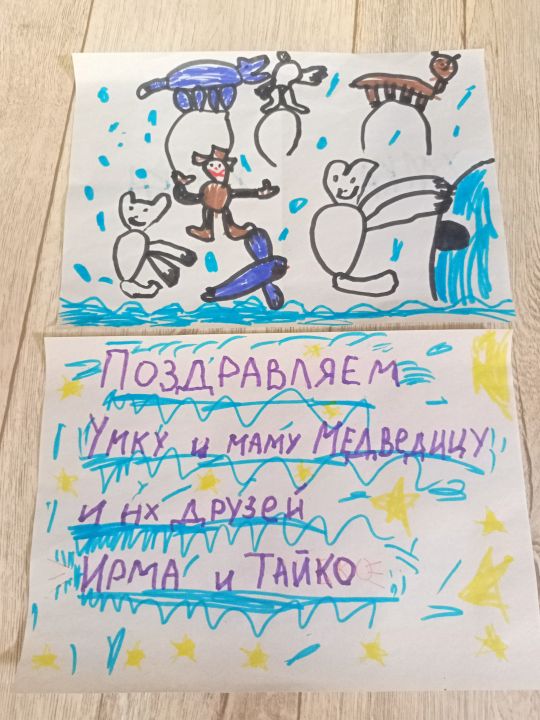 ПОЗДРАВЛЯЕМ
УМКУ и МАМУ МЕДВЕДИЦУ
и их ДРУЗЕЙ
ИРМА и ТАЙКО